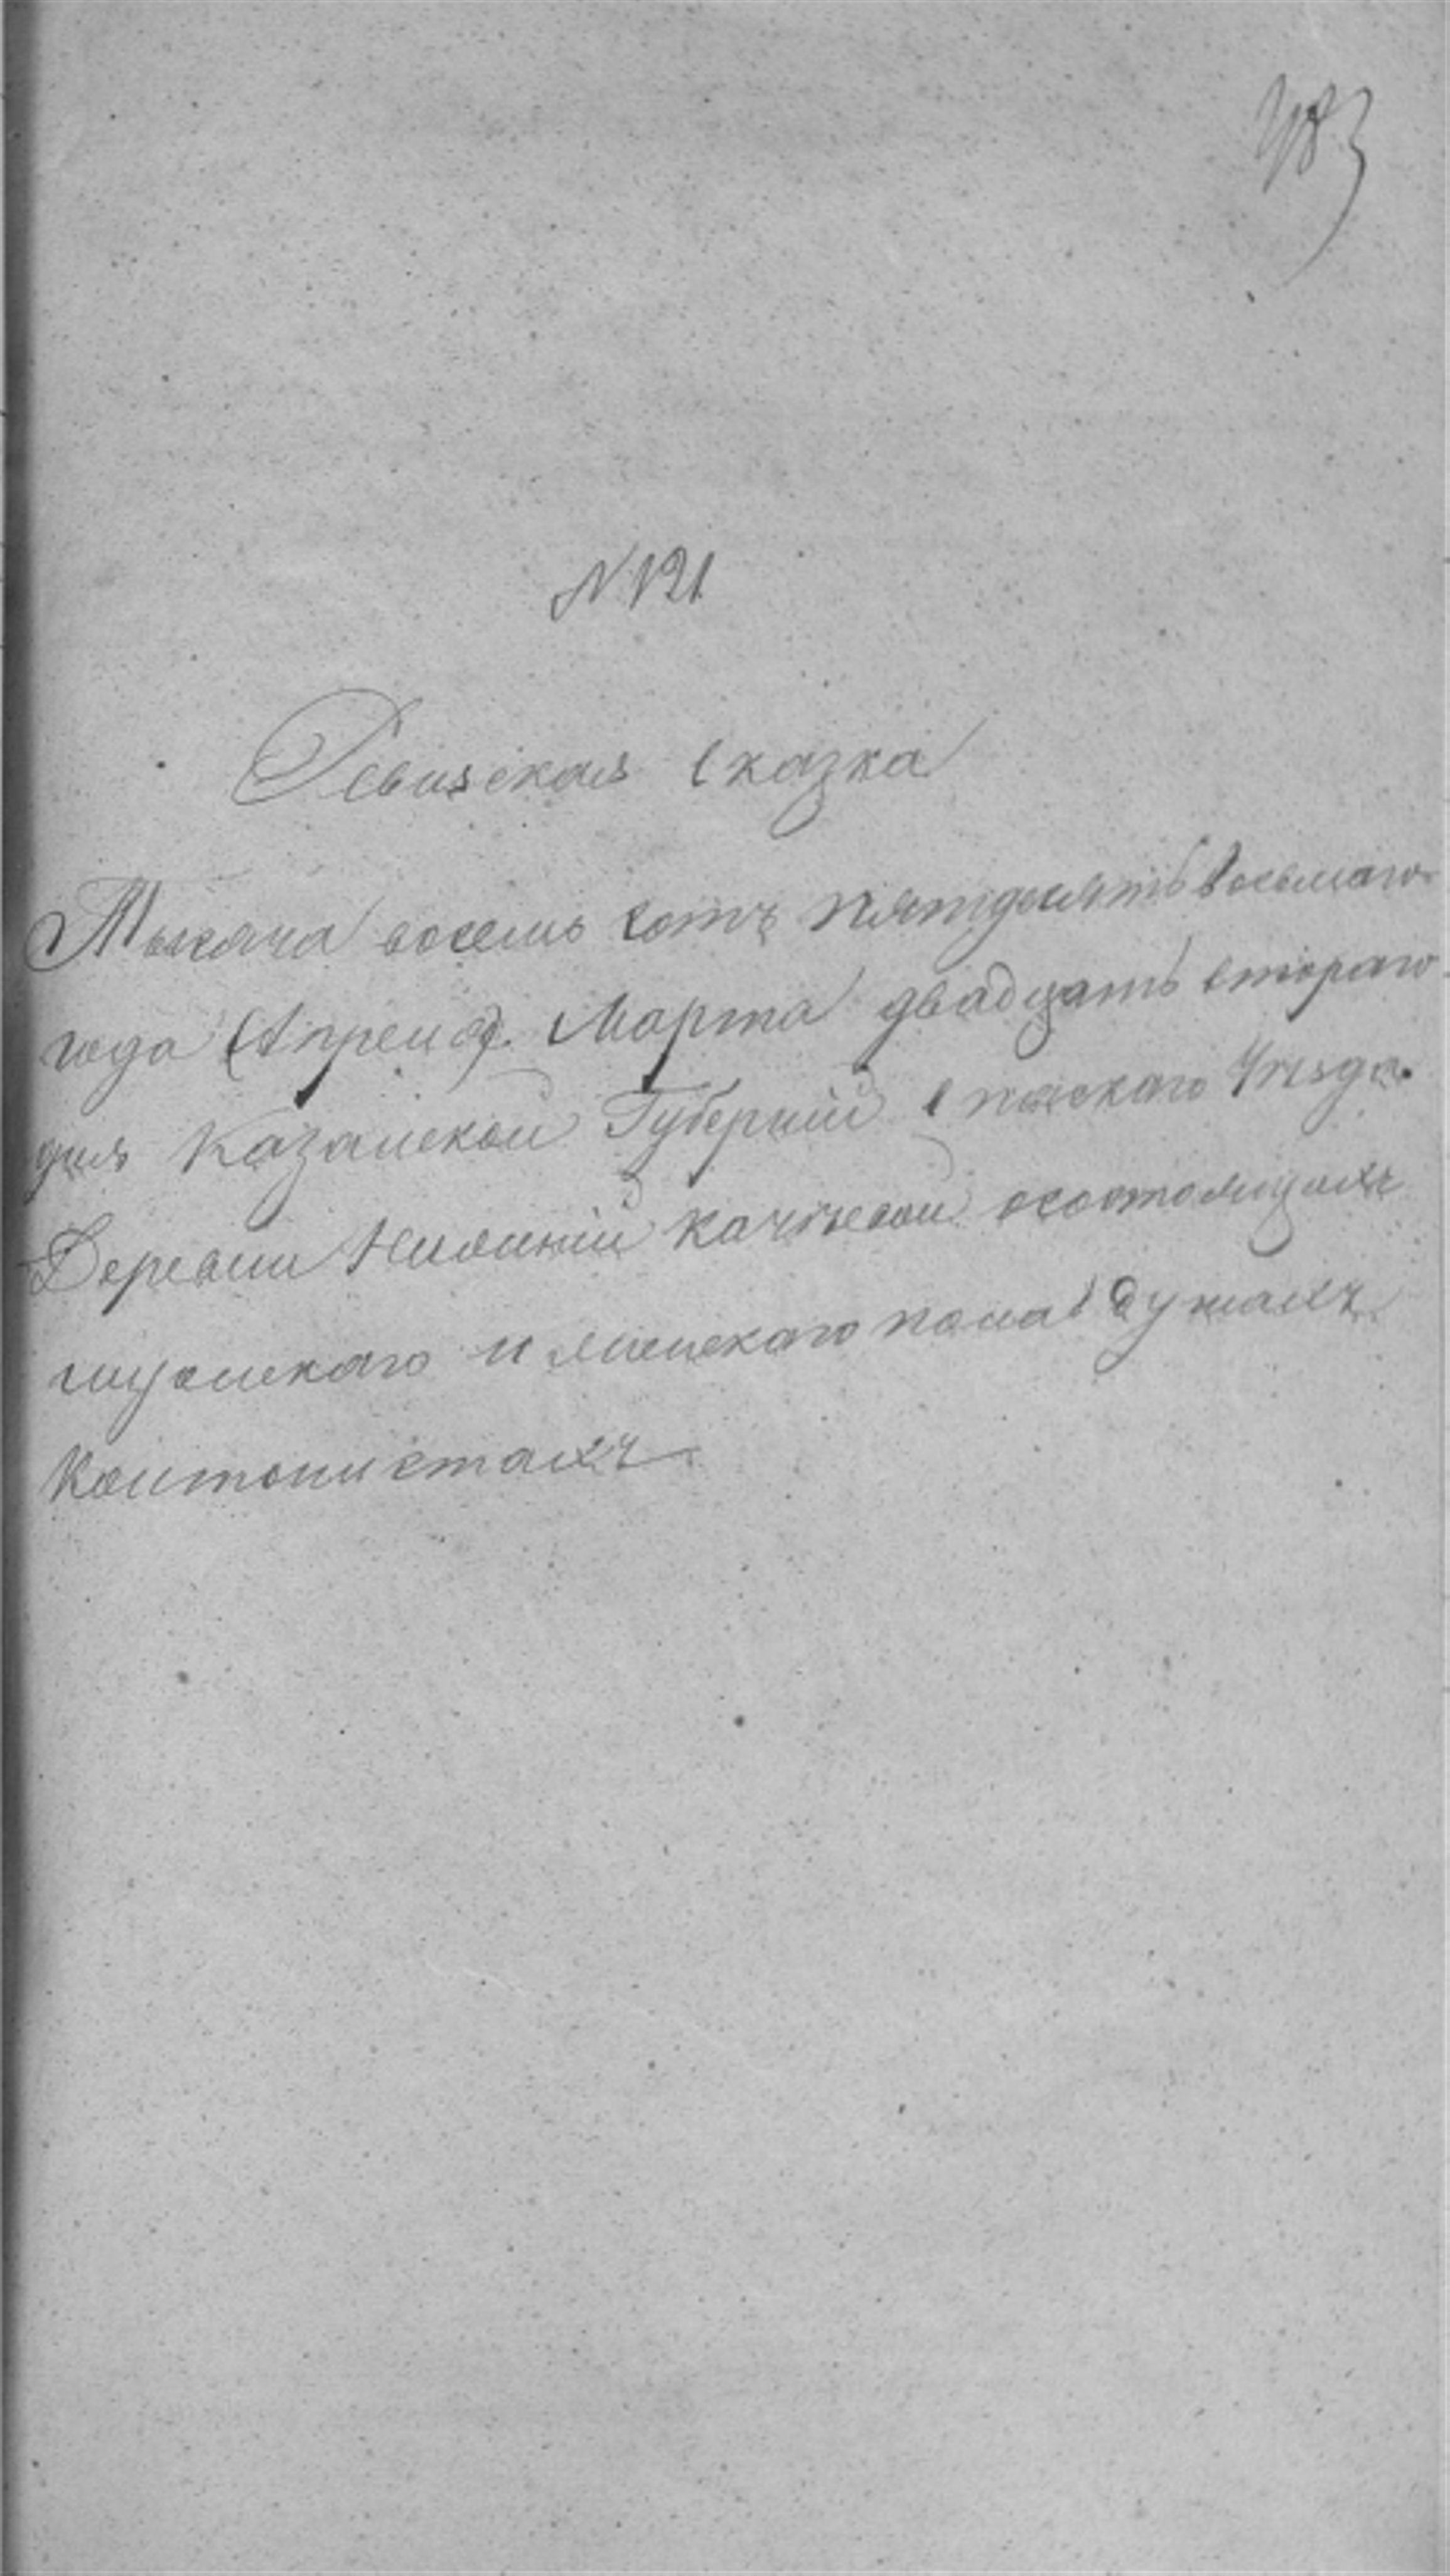 483
N 121
Ревизская Сказка
Тысяча восемь сотъ пятдесятъ восьмаго
года (Апреля) Марта двадцать втораго
дня Казанской Губерніи Спаскаго Уезда
Деревни Нижній Качеевой осостоящихъ
мужскаго и женскаго пола душахъ
Кантонистахъ